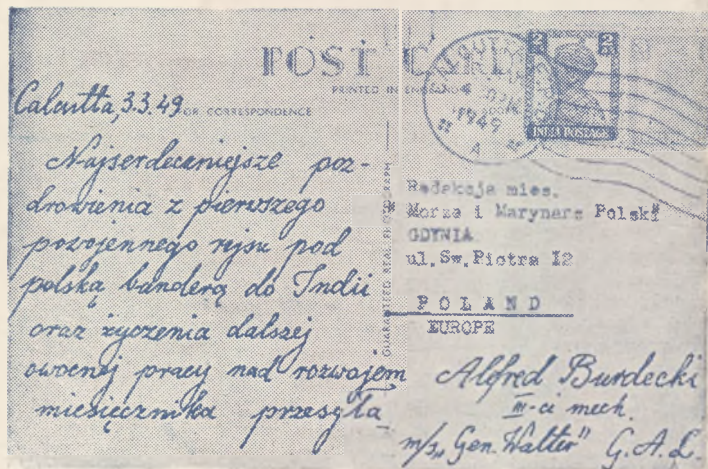 POST CARD
PRINTED IN ENGLAND
FOR CORRESPONDENCE
Calcutta, 3.3.49
Najserdeczniejsze poz-
drowienia z pierwszego
powojennego rejsu pod
polską banderą do Indii
oraz życzenia dalszej
owocnej pracy nad rozwojem
miesięcznika przesyła
GUARANTEED REAL PHOTOGRAPH
CALCUTTA
1949
A
2
INDIA POSTAGE
Redakcja mies.
"Morze i Marynarz Polski"
GDYNIA
ul. Sw. Piotra I2
POLAND
EUROPE
Alfred Burdecki
III-ci mech.
m/s „Gen. Walter" G.A.L.